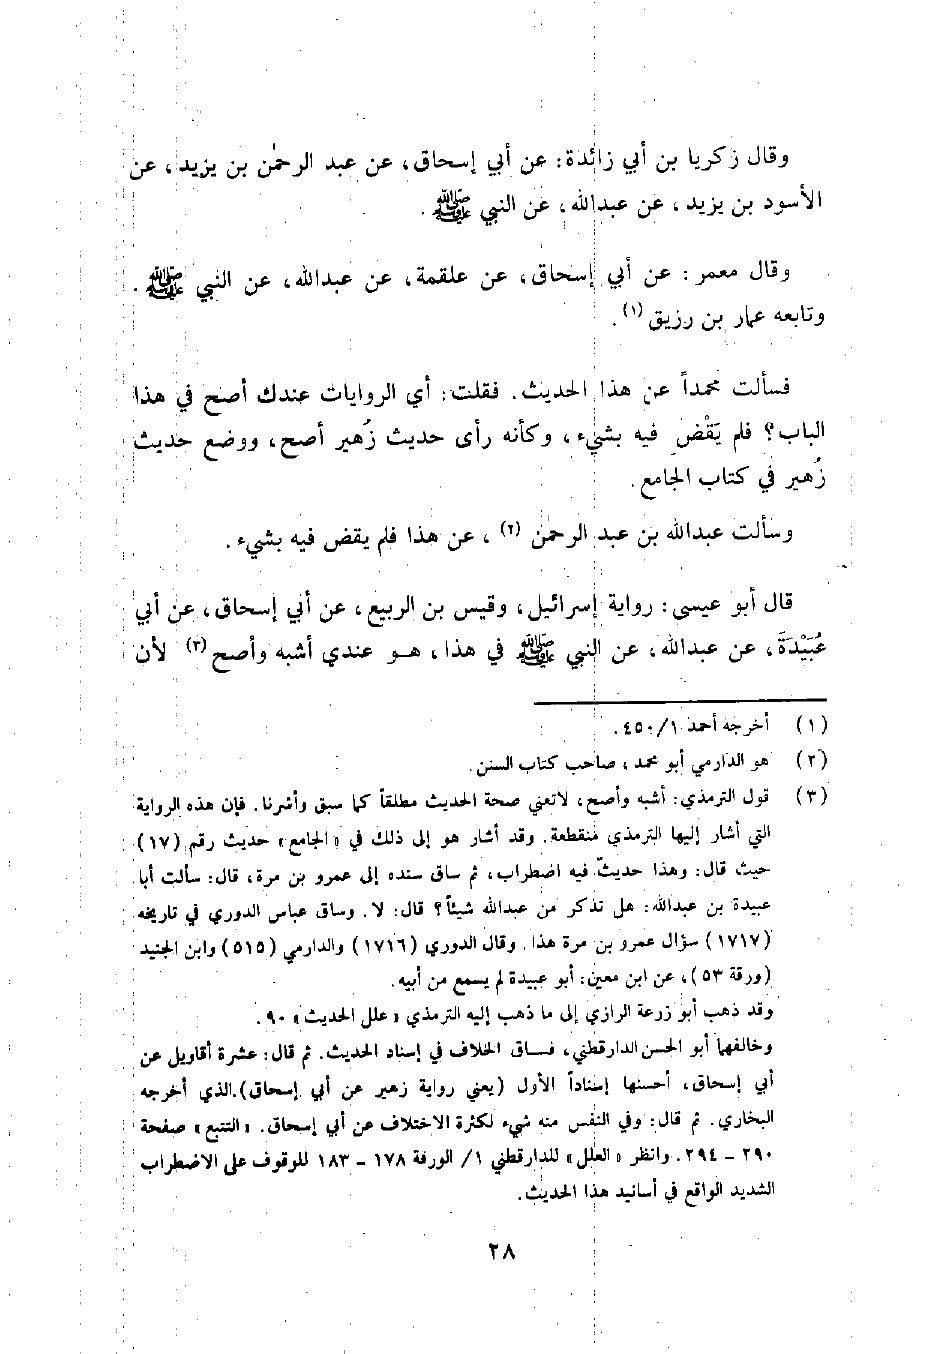 وقال زكريا بن أبي زائدة: عن أبي إسحاق، عن عبد الرحمٰن بن يزيد، عن
الأسود بن يزيد، عن عبدالله، عن النبي ﷺ.
وقال معمر: عن أبي إسحاق، عن علقمة، عن عبدالله، عن النبي ﷺ.
وتابعه عمار بن رزيق (١).
فسألت محمداً عن هذا الحديث. فقلت: أي الروايات عندك أصح في هذا
الباب؟ فلم يَقْضِ فيه بشيء، وكأنه رأى حديث زُهير أصح، ووضع حديث
زُهير في كتاب الجامع.
وسألت عبدالله بن عبد الرحمٰن (٢)، عن هذا فلم يقض فيه بشيء.
قال أبو عيسى: رواية إسرائيل، وقيس بن الربيع، عن أبي إسحاق، عن أبي
عُبَيْدَةَ، عن عبدالله، عن النبي ﷺ في هذا، هو عندي أشبه وأصح (٣) لأن
(١) أخرجه أحمد ٤٥٠/١.
(٢) هو الدارمي أبو محمد، صاحب كتاب السنن.
(٣) قول الترمذي: أشبه وأصح، لاتعني صحة الحديث مطلقاً كما سبق وأشرنا. فإن هذه الرواية
التي أشار إليها الترمذي منقطعة. وقد أشار هو إلى ذلك في «الجامع» حديث رقم (١٧)
حيث قال: وهذا حديثٌ فيه اضطراب، ثم ساق سنده إلى عمرو بن مرة، قال: سألت أبا
عبيدة بن عبدالله: هل تذكر من عبدالله شيئاً؟ قال: لا. وساق عباس الدوري في تاريخه
(١٧١٧) سؤال عمرو بن مرة هذا. وقال الدوري (١٧١٦) والدارمي (٥١٥) وابن الجنيد
(ورقة ٥٣)، عن ابن معين: أبو عبيدة لم يسمع من أبيه.
وقد ذهب أبو زرعة الرازي إلى ما ذهب إليه الترمذي «علل الحديث» ٩٠.
وخالفهما أبو الحسن الدارقطني، فساق الخلاف في إسناد الحديث. ثم قال: عشرة أقاويل عن
أبي إسحاق، أحسنها إسناداً الأول (يعني رواية زهير عن أبي إسحاق) الذي أخرجه
البخاري. ثم قال: وفي النفس منه شيء لكثرة الاختلاف عن أبي إسحاق. «التتبع» صفحة
٢٩٠ - ٢٩٤. وانظر «العلل» للدارقطني ١/ الورقة ١٧٨ - ١٨٣ للوقوف على الاضطراب
الشديد الواقع في أسانيد هذا الحديث.
٢٨